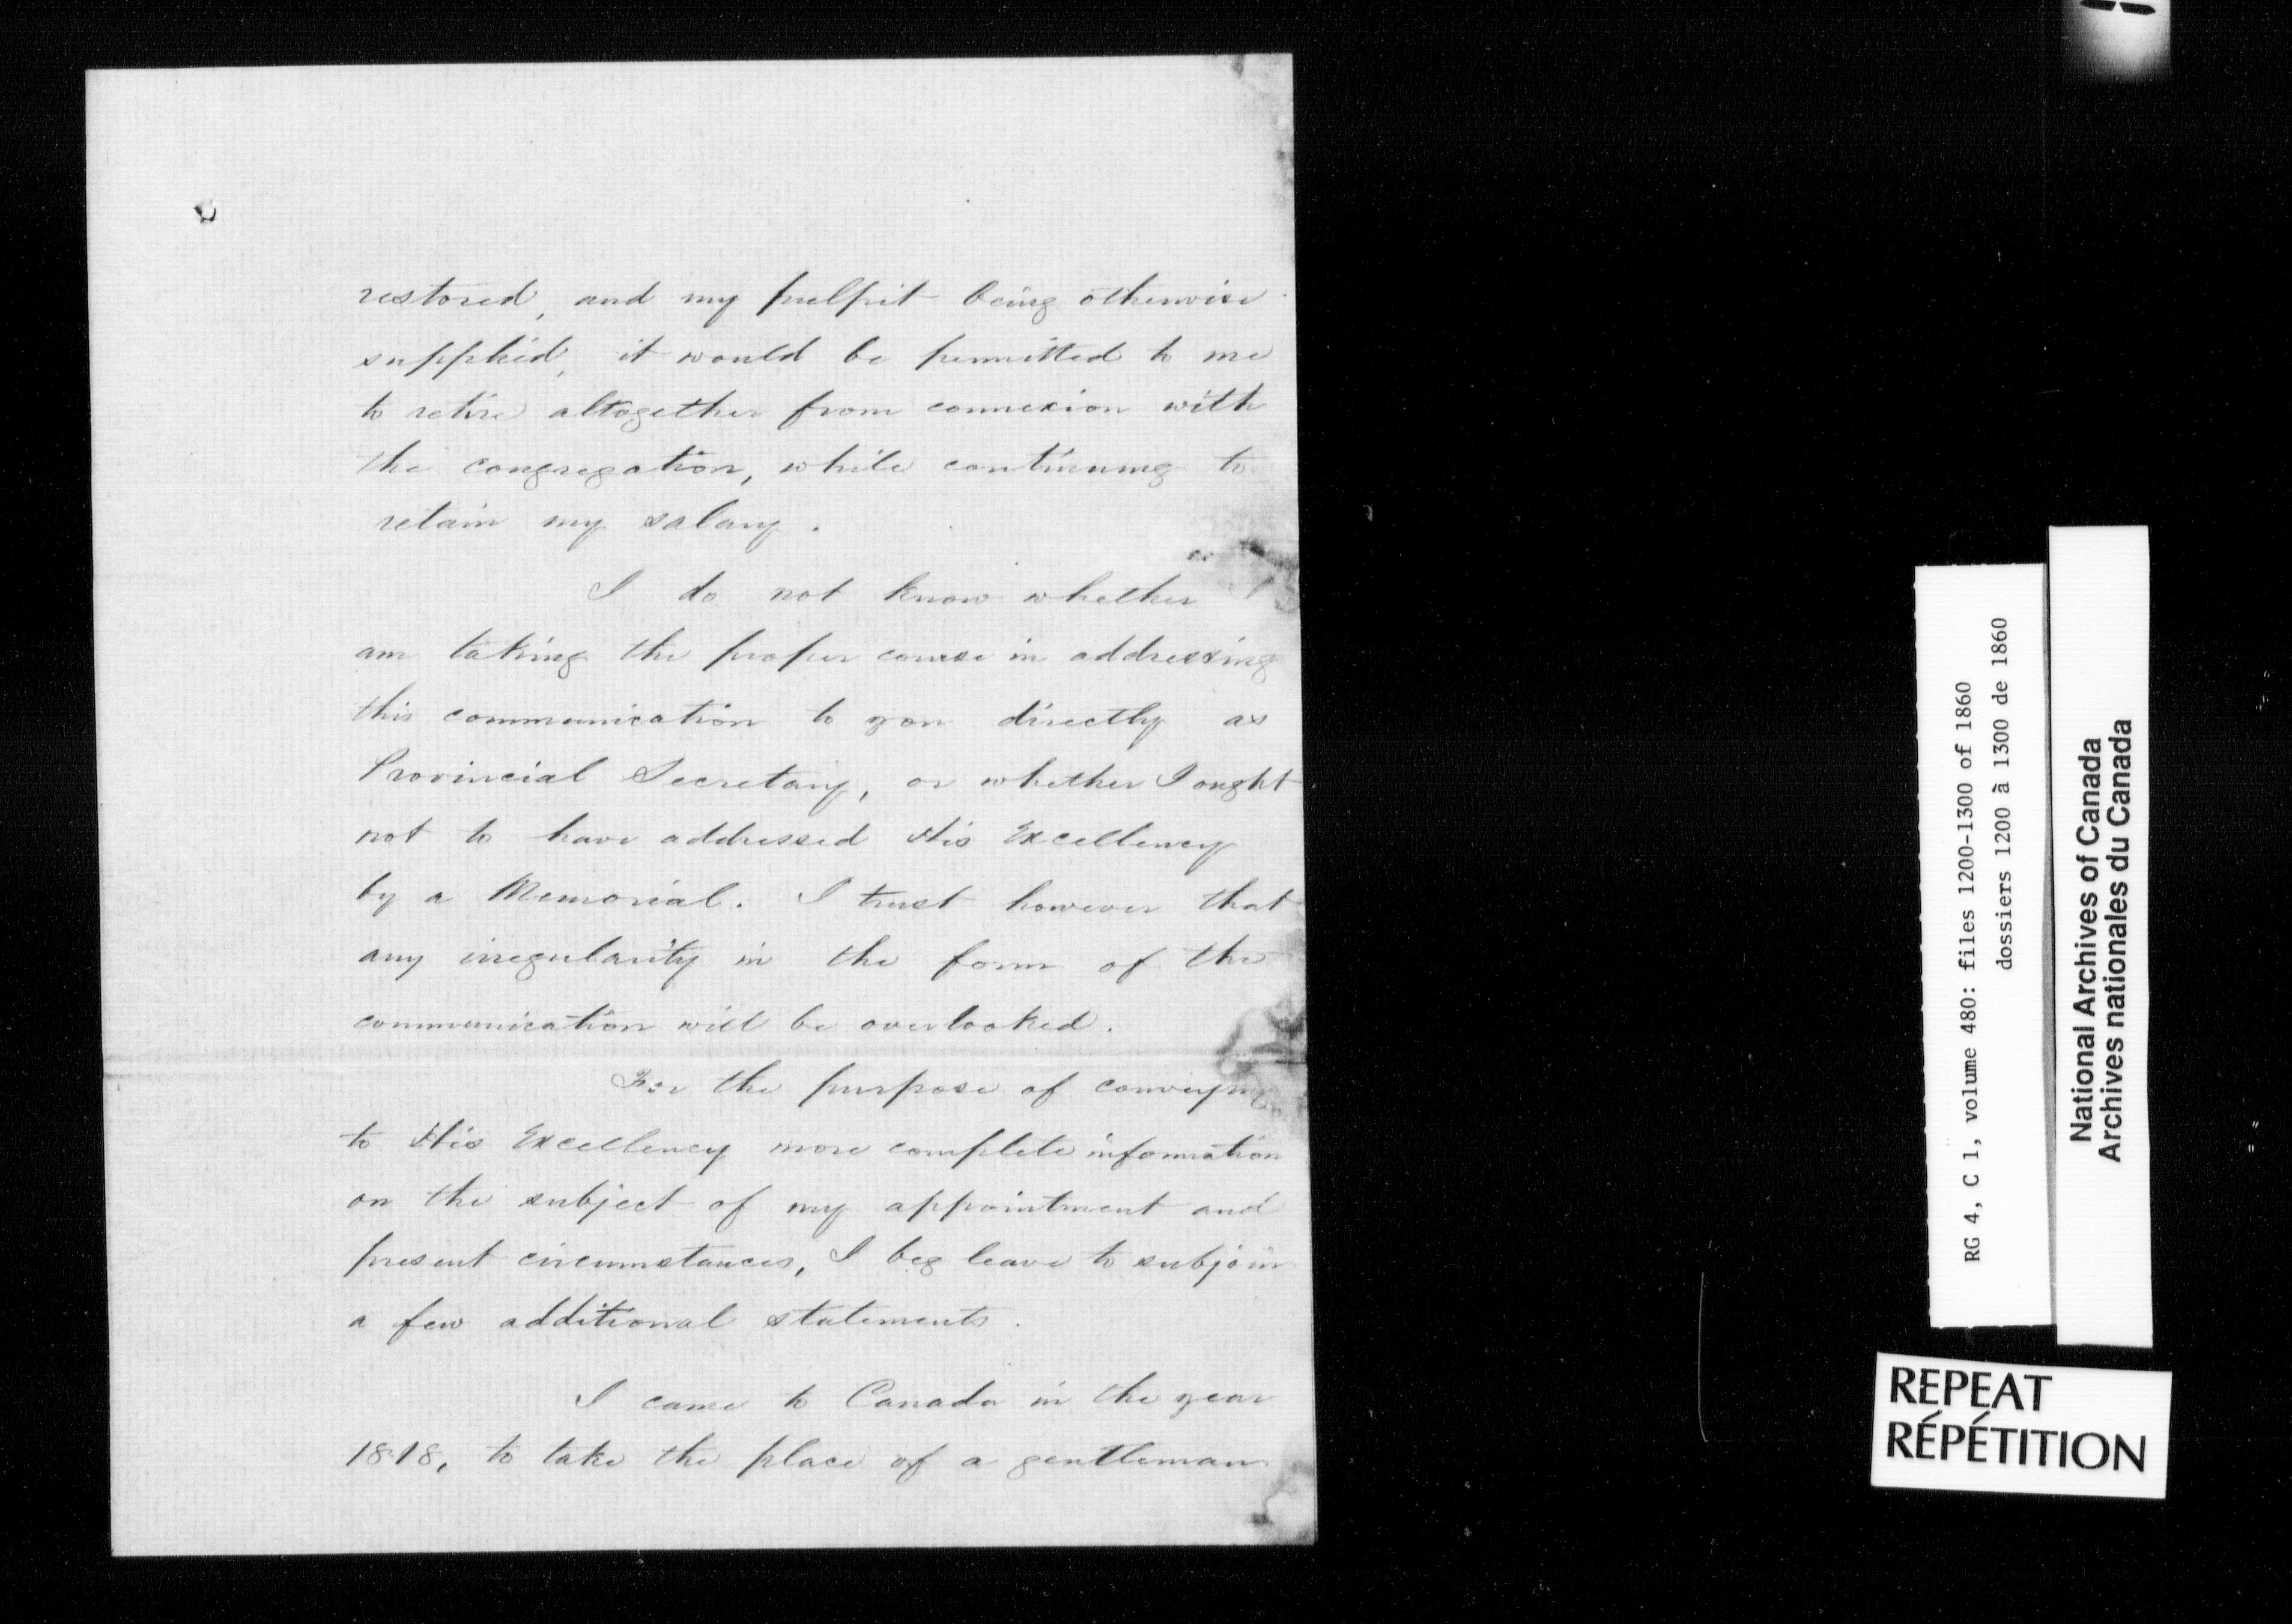 restored, and my pulpit being otherwise
supplied, it would be permitted to me
to retire altogether from connexion with
the congregation, while continuing to
retain my salary.
I do not know whether I
am taking the proper course in addressing
this communication to you directly as
Provincial Secretary, or whether I ought
not to have addressed His Excellency
by a Memorial. I trust however that
any irregularity in the form of the
communication will be overlooked.
For the purpose of conveying
to His Excellency more complete information
on the subject of my appointment and
present circumstances, I beg leave to subjoin
a few additional statements.
I came to Canada in the year
1818, to take the place of a gentleman
RG 4, C 1, volume 480: files 1200-1300 of 1860
dossiers 1200 à 1300 de 1860
National Archives of Canada
Archives nationales du Canada
REPEAT
RÉPÉTITION